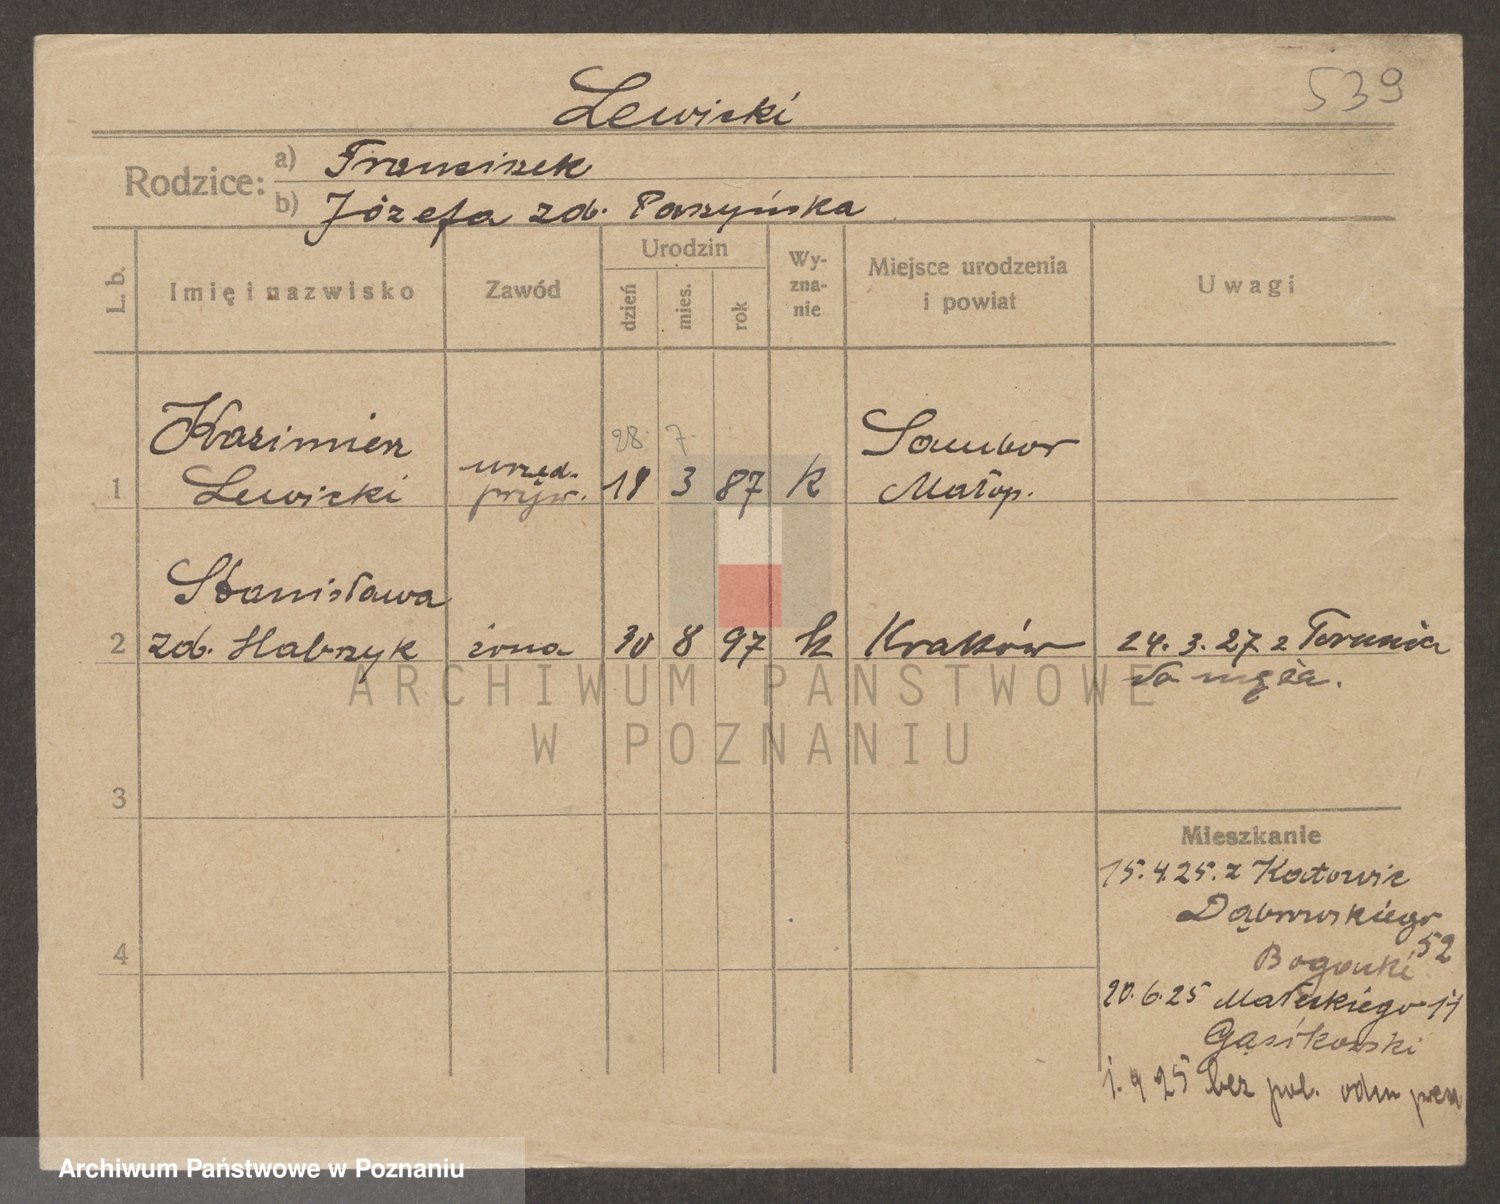 539
Lewicki
Rodzice: a) Franciszek
b) Józefa zd. Paszyńska
L. b.
Imię i nazwisko
Zawód
Urodzin
dzień
mies.
rok
Wy-
zna-
nie
Miejsce urodzenia
i powiat
Uwagi
Kazimierz
28. 7.
Sambor
1 Lewicki urzęd. pryw. 18 3 87 k Małop.
Stanisława
2 zd. Habrzyk żona 30 8 97 k Kraków 24. 3. 27 z Torunia
do męża.
ARCHIWUM PAŃSTWOWE
W POZNANIU
3
Mieszkanie
15. 4. 25. z Katowic
Dąbrowskiego
52
4
20. 6. 25 Małeckiego
Gąsikowski
1. 9 25 bez pol. odm
Archiwum Państwowe w Poznaniu